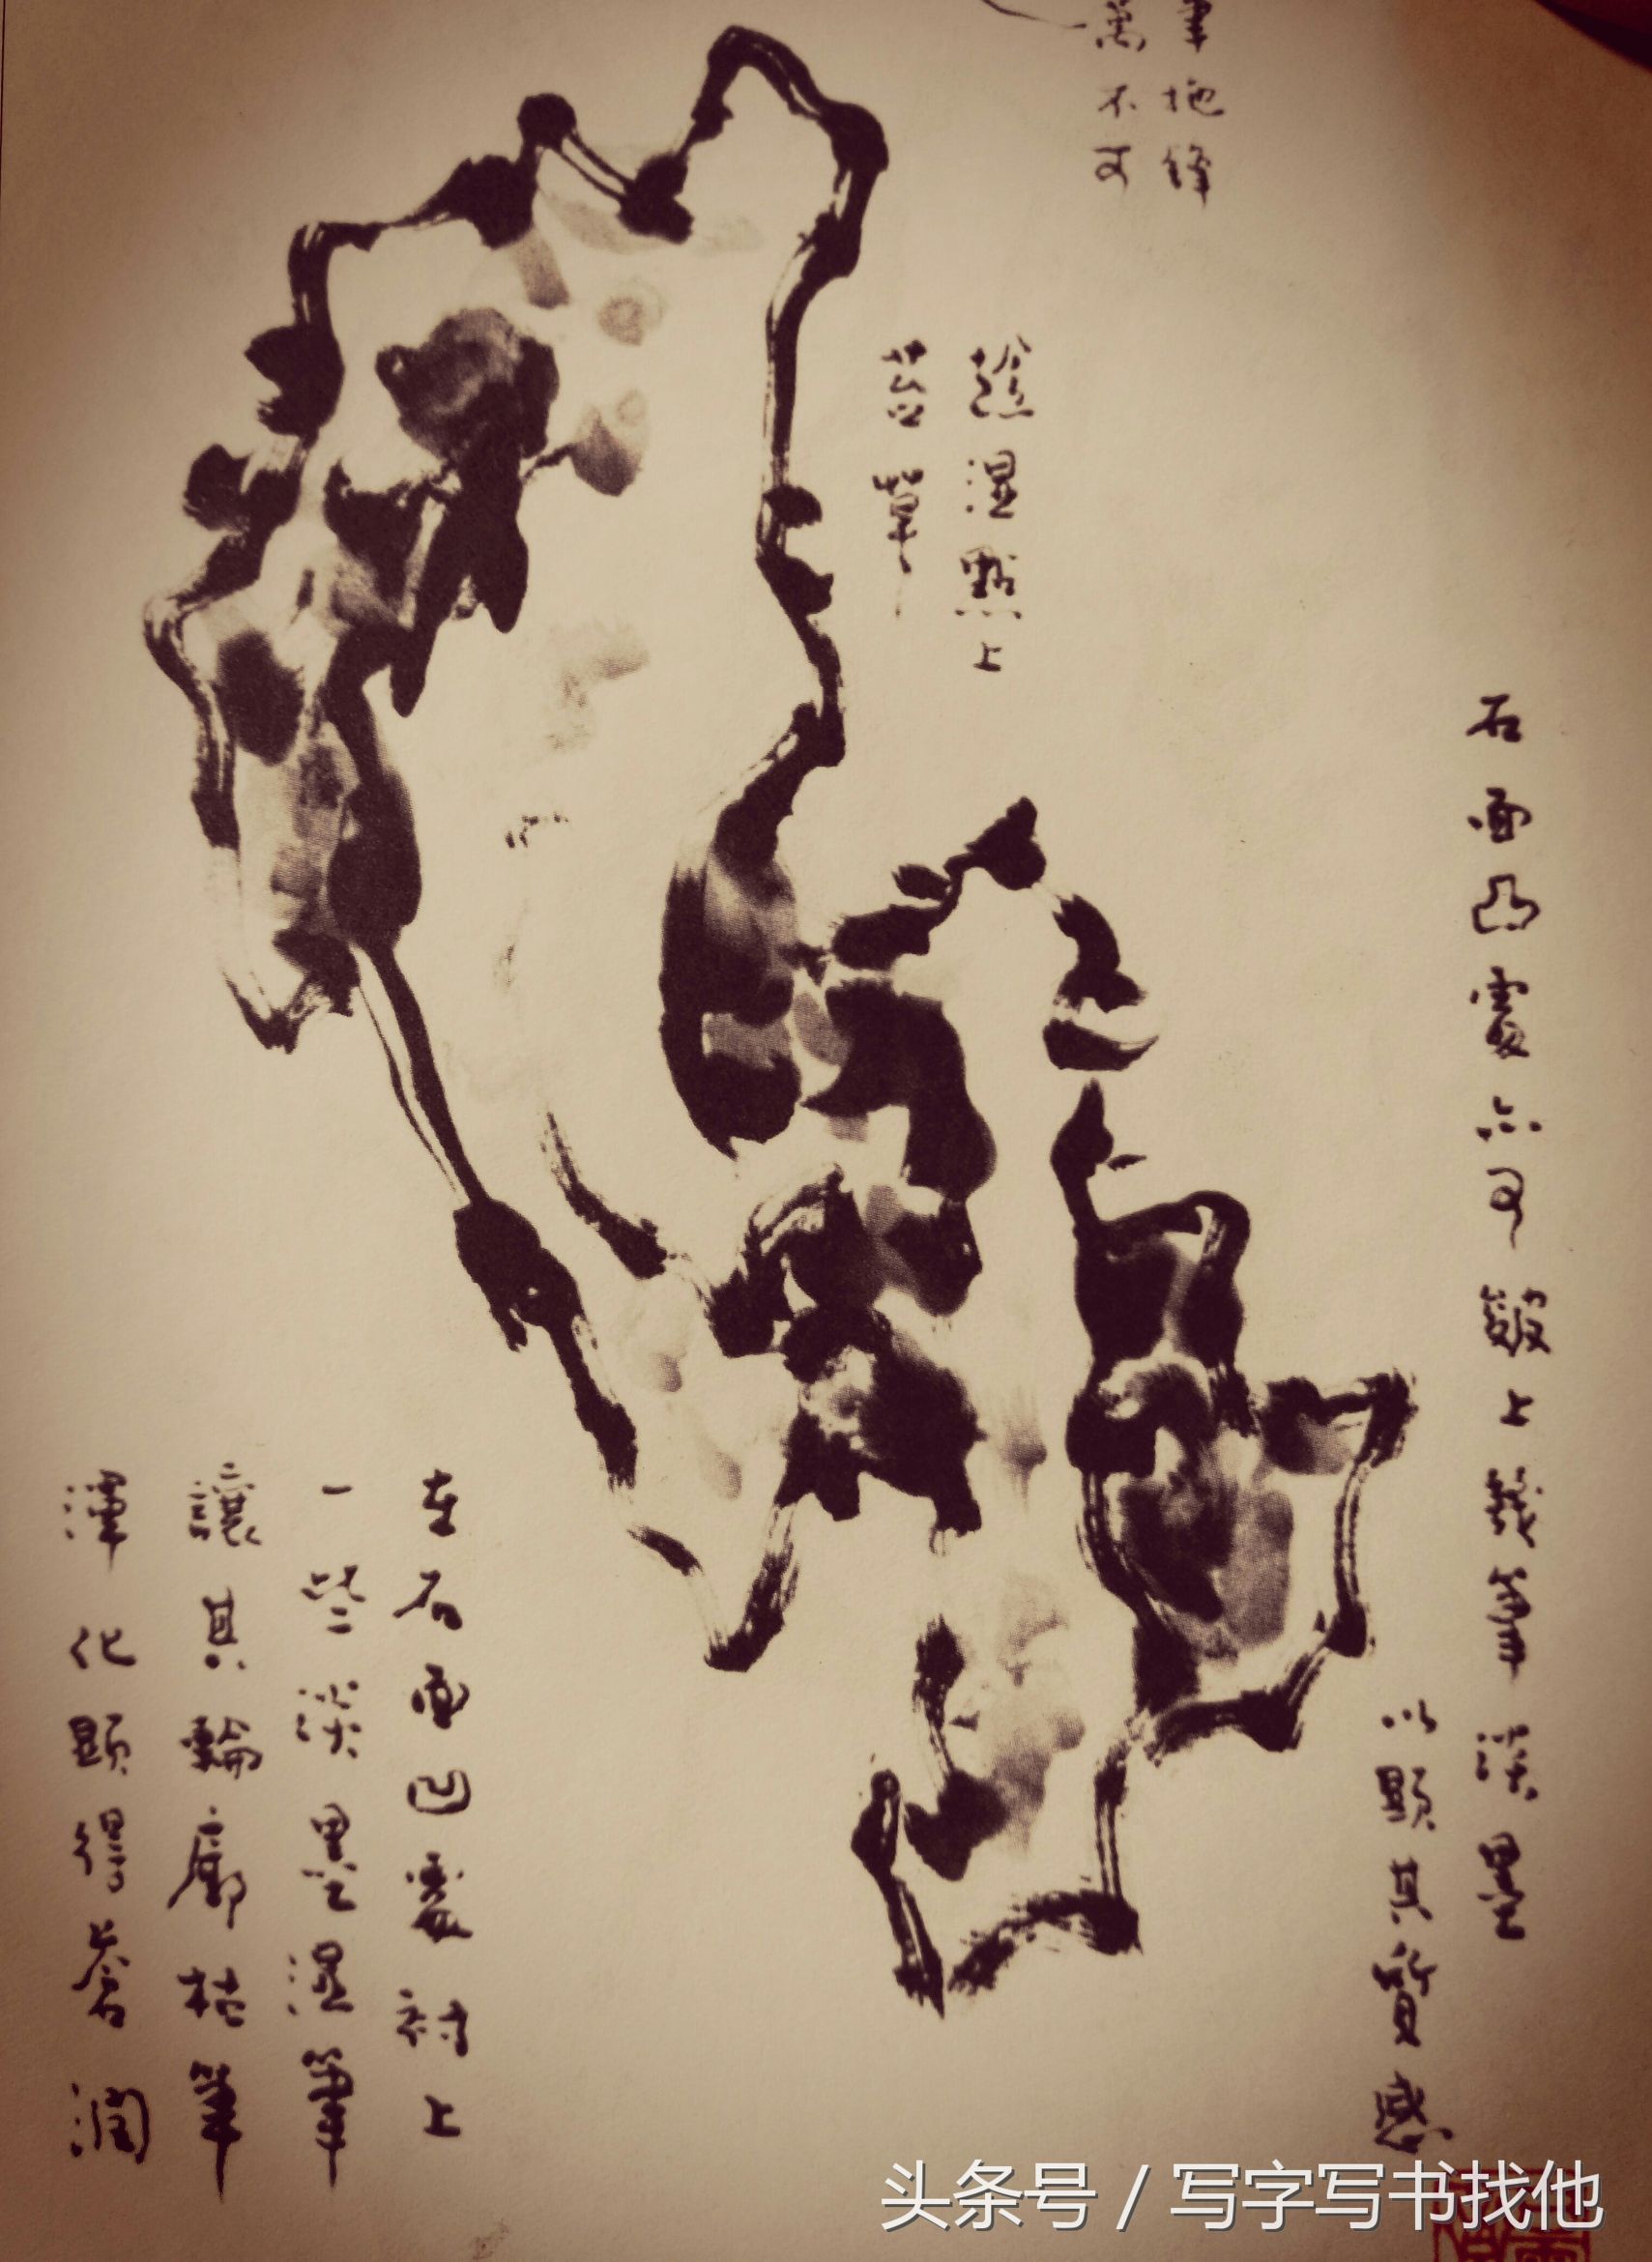 石面凸處亦可皴上幾筆淡墨
以顯其質感
筆拖鋒
萬不可
趁濕點上
苔草
在石面凹處衬上
一些淡墨濕筆
讓其輪廓枯筆
渾化顯得蒼潤
头条号 / 写字写书找他